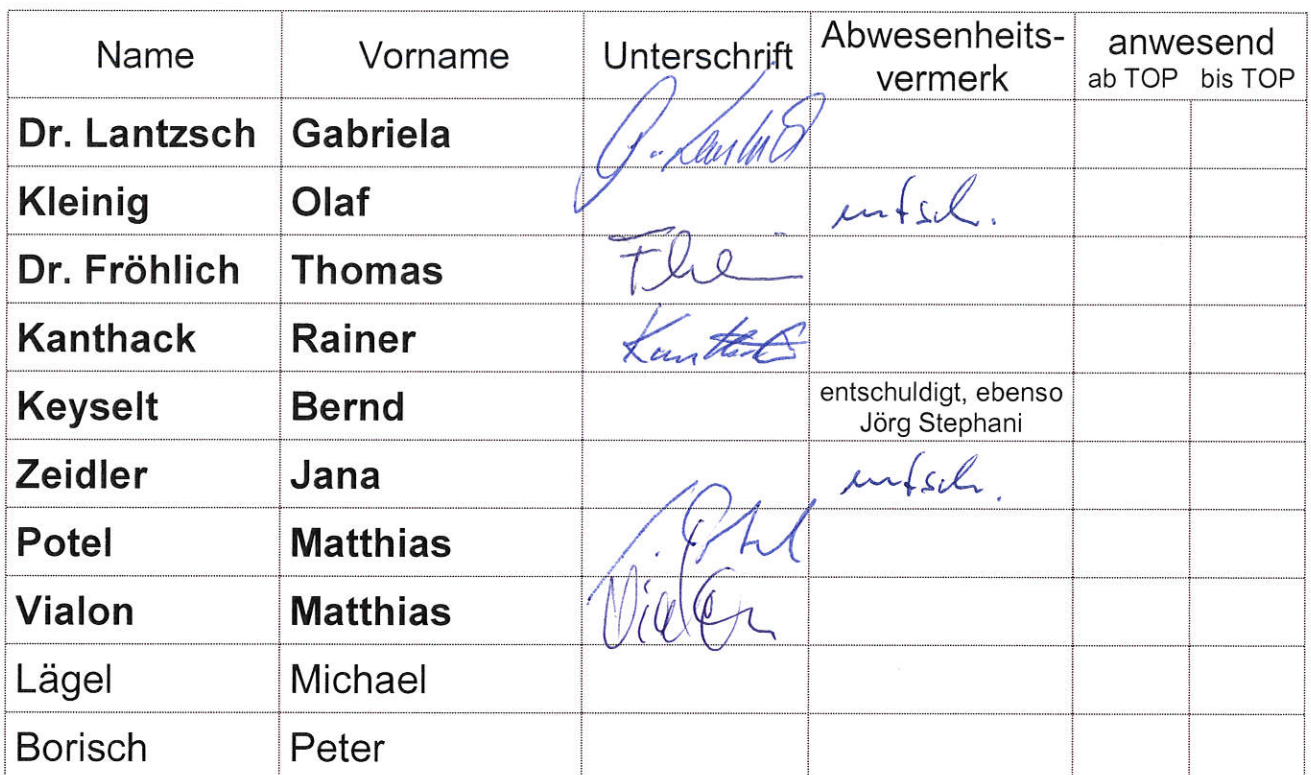 Name Vorname Unterschrift Abwesenheits- anwesend
vermerk ab TOP bis TOP
Dr. Lantzsch Gabriela
Kleinig Olaf entsch.
Dr. Fröhlich Thomas
Kanthack Rainer
Keyselt Bernd entschuldigt, ebenso
Jörg Stephani
Zeidler Jana entsch.
Potel Matthias
Vialon Matthias
Lägel Michael
Borisch Peter